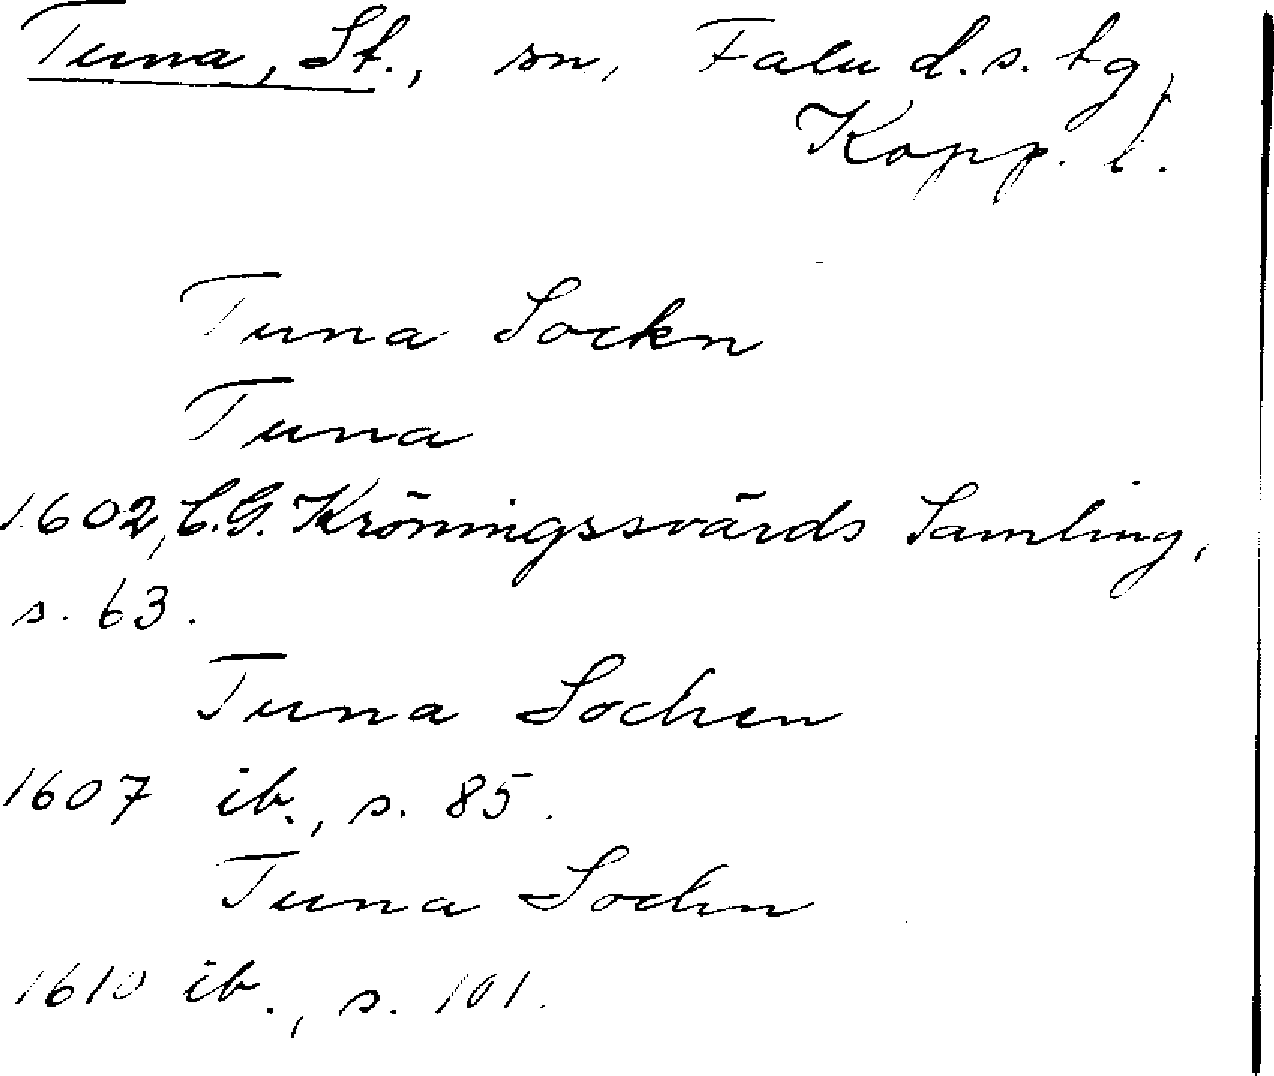 Tuna, St., sn, Falu d.s. tg,
Kopp. l.
Tuna Sockn
Tuna
1602, C.G. Kröningssvärds Samling,
s. 63.
Tuna Sochen
1607 ib., s. 85.
Tuna Sochn
1610 ib., s. 101.